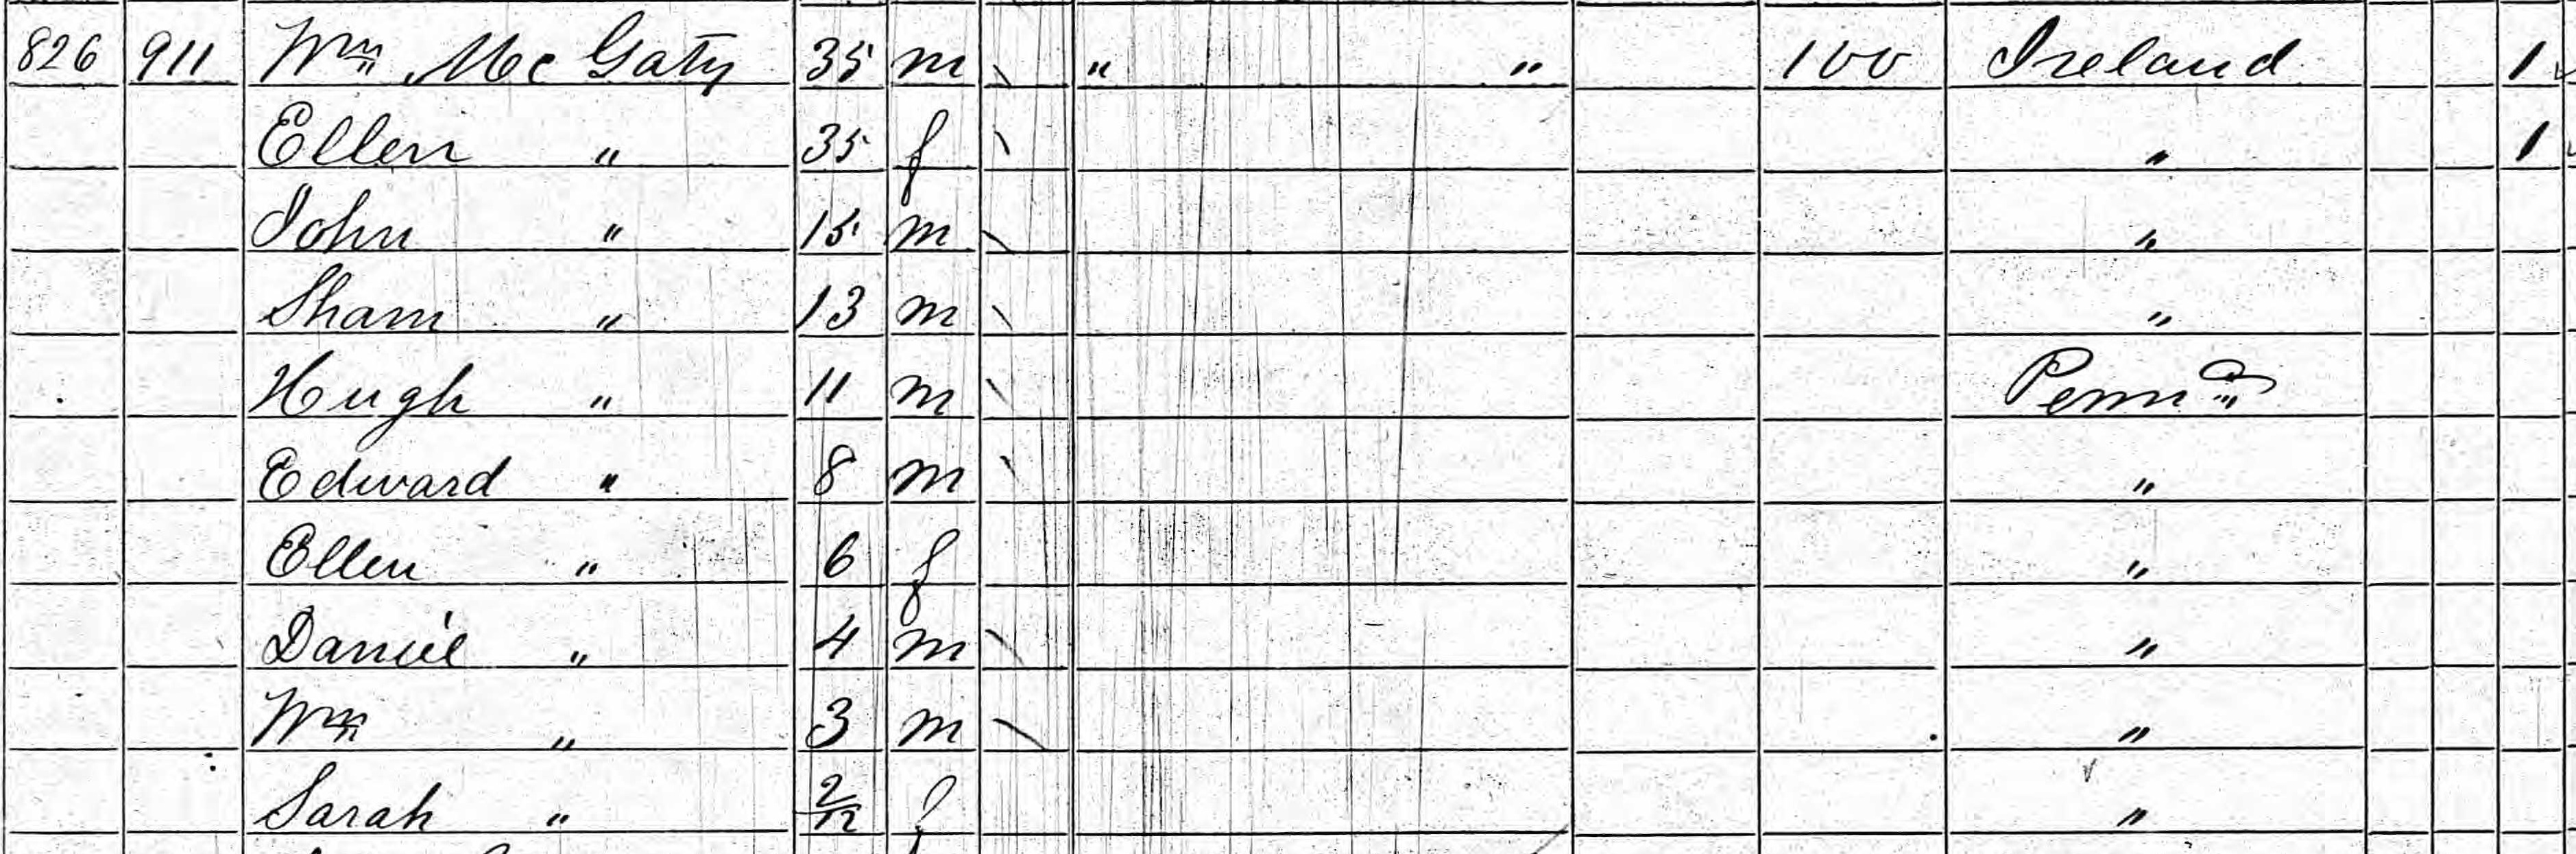 826 911 Wm Mc Gaty 35 m " " 100 Ireland 1
Ellen " 35 f " 1
John " 15 m "
Sham " 13 m "
Hugh " 11 m Penna
Edward " 8 m "
Ellen " 6 f "
Daniel " 4 m "
Wm " 3 m "
Sarah " 2/12 f "